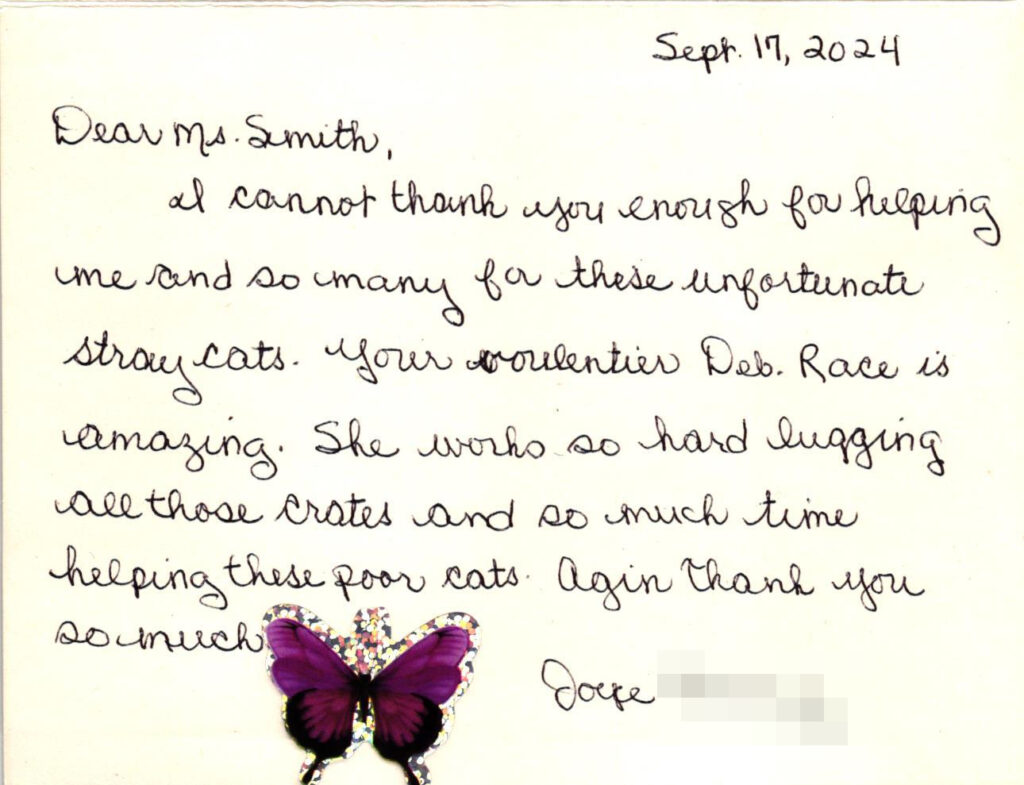 Sept. 17, 2024
Dear Ms. Smith,
I cannot thank you enough for helping
me and so many for these unfortunate
stray cats. Your voulentier Deb. Race is
amazing. She works so hard lugging
all those crates and so much time
helping these poor cats. Agin Thank you
so much
Joyce